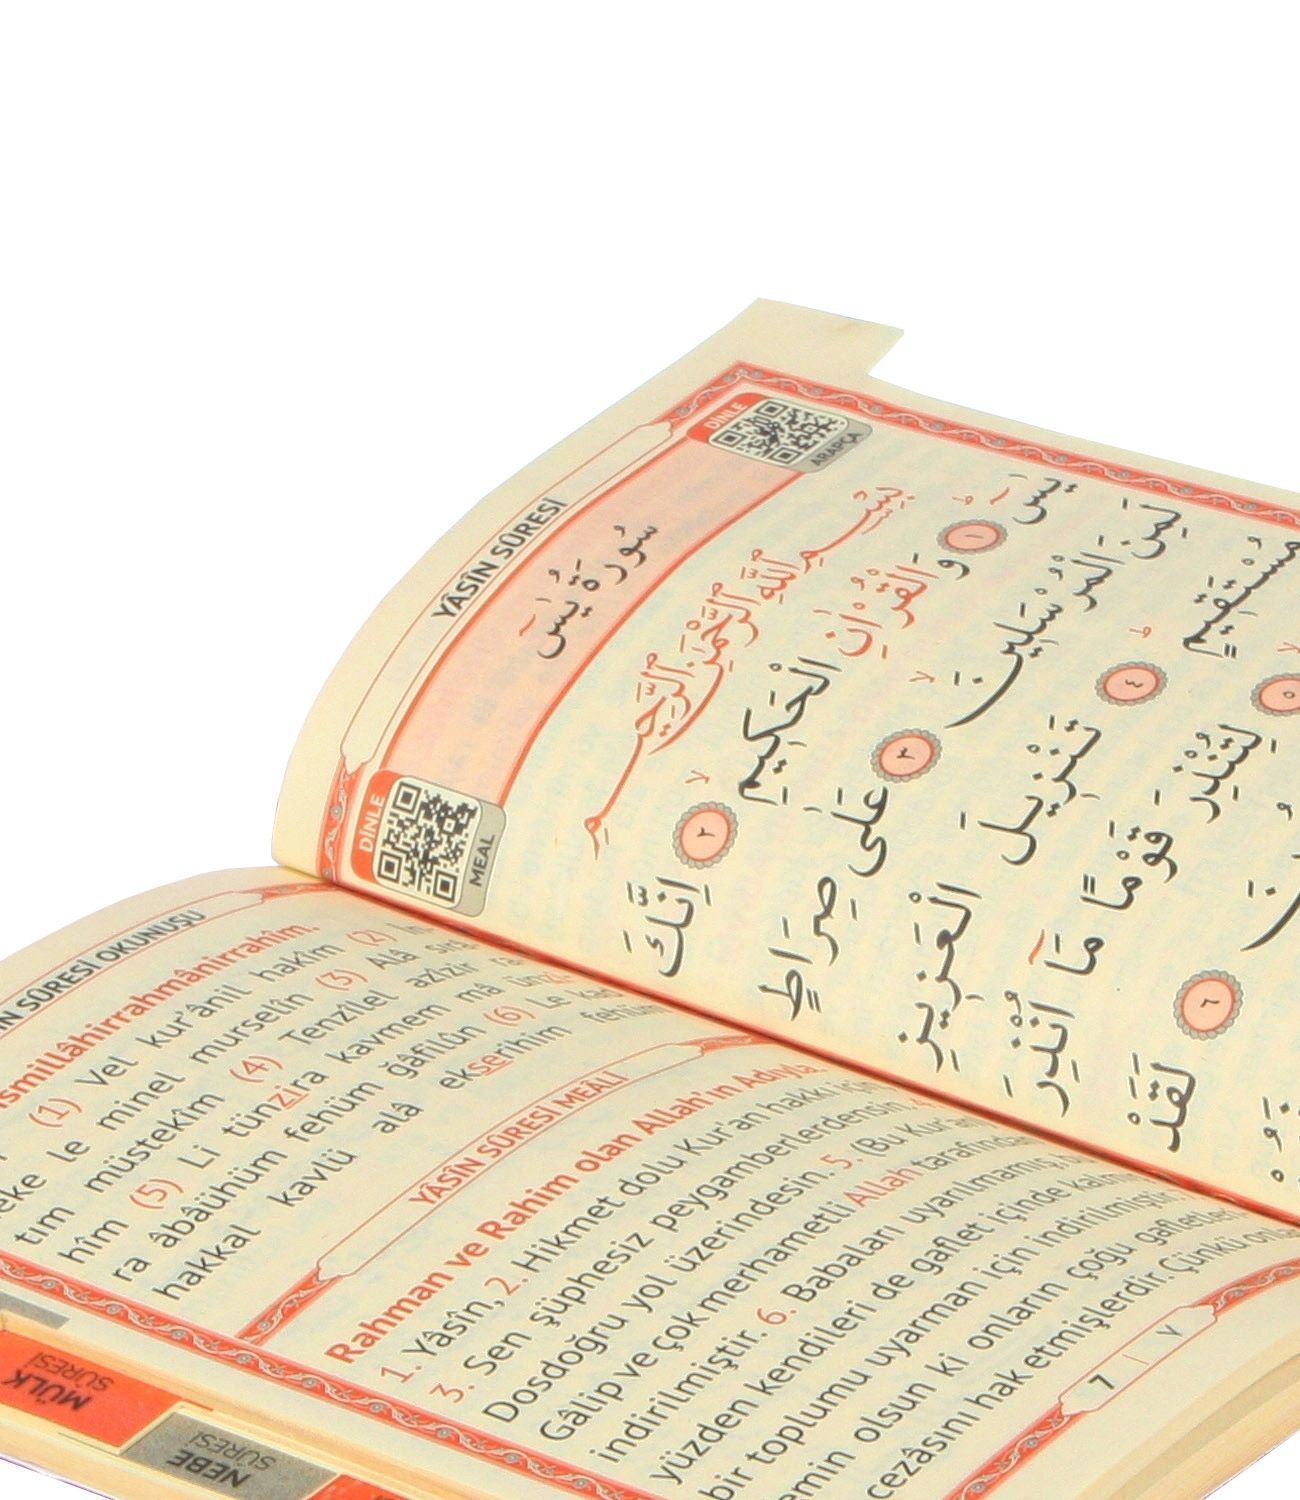 YÂSÎN SÛRESİ
DİNLE
ARAPÇA
سُورَةُ يٰسٓ
DİNLE
MEAL
بِسْمِ اللّٰهِ الرَّحْمٰنِ الرَّحِيمِ
يٰسٓ ١ وَالْقُرْاٰنِ الْحَكِيمِ ٢ اِنَّكَ
لَمِنَ الْمُرْسَلِينَ ٣ عَلٰى صِرَاطٍ
مُسْتَقِيمٍ ٤ تَنْزِيلَ الْعَزِيزِ
٥ لِتُنْذِرَ قَوْمًا مَٓا اُنْذِرَ
٦ لَقَدْ
SÛRESİ OKUNUŞU
smillâhirrahmânirrahîm.
(1) Vel kur'ânil hakîm (2) İn
neke le minel murselîn (3) Alâ sırâ
tım müstekîm (4) Tenzîlel azîzir ra
hîm (5) Li tünzira kavmem mâ ünzi
ra âbâühüm fehüm ğâfilûn (6) Le kad
hakkal kavlü alâ ekserihim fehüm
YÂSÎN SÛRESİ MEÂLİ
Rahman ve Rahim olan Allah'ın Adıyla.
1. Yâsîn, 2. Hikmet dolu Kur'an hakkı için
3. Sen şüphesiz peygamberlerdensin. 4.
Dosdoğru yol üzerindesin. 5. (Bu Kur'an
Gâlip ve çok merhametli Allah tarafından
indirilmiştir. 6. Babaları uyarılmamış, bu
yüzden kendileri de gaflet içinde kalmış
bir toplumu uyarman için indirilmiştir.
emin olsun ki onların çoğu gafletleri
cezâsını hak etmişlerdir. Çünkü onlar
7 | ٧
MÜLK
SÛRESİ
NEBE
SÛRESİ